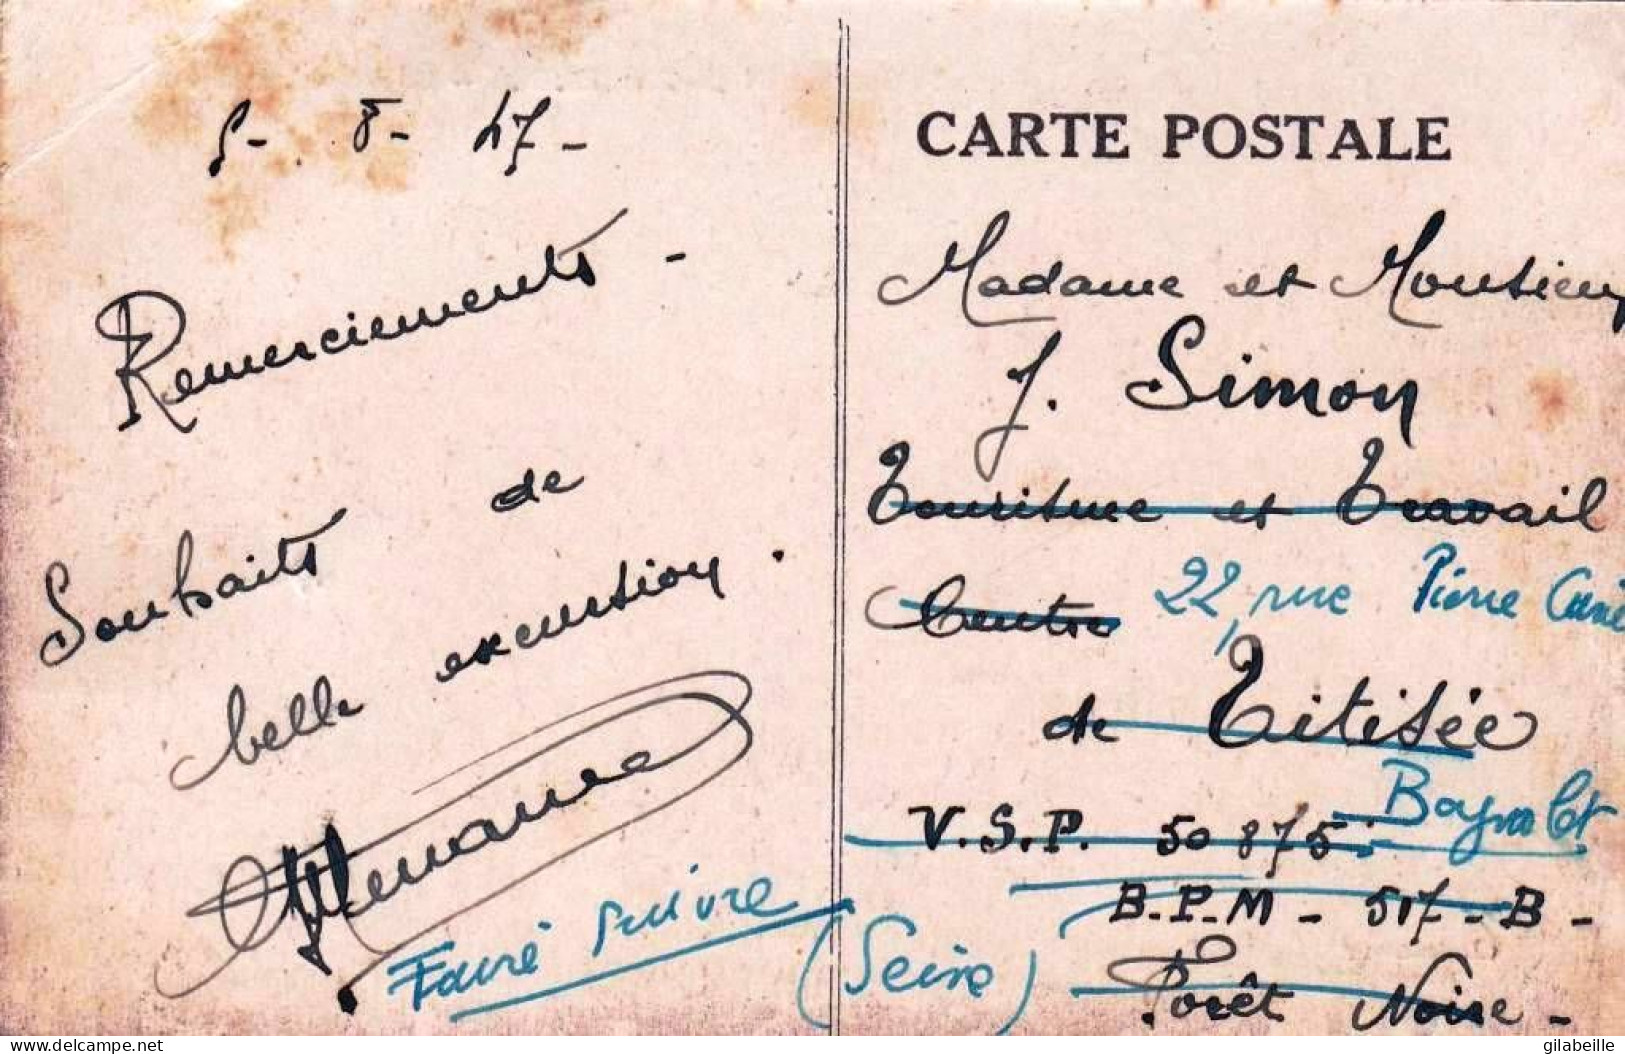 5 - 8 - 47 -
Remerciements -
Souhaits de
belle excursion .
Faire suivre
CARTE POSTALE
Madame et Monsieur
J. Simon
Tourisme et Travail
Centre
22, rue Pierre Curie
de Titisée
Bagnolet
V.S.P. 50 875
B.P.M - 517 - B -
(Seine)
Forêt Noire -
delcampe.net
gilabeille